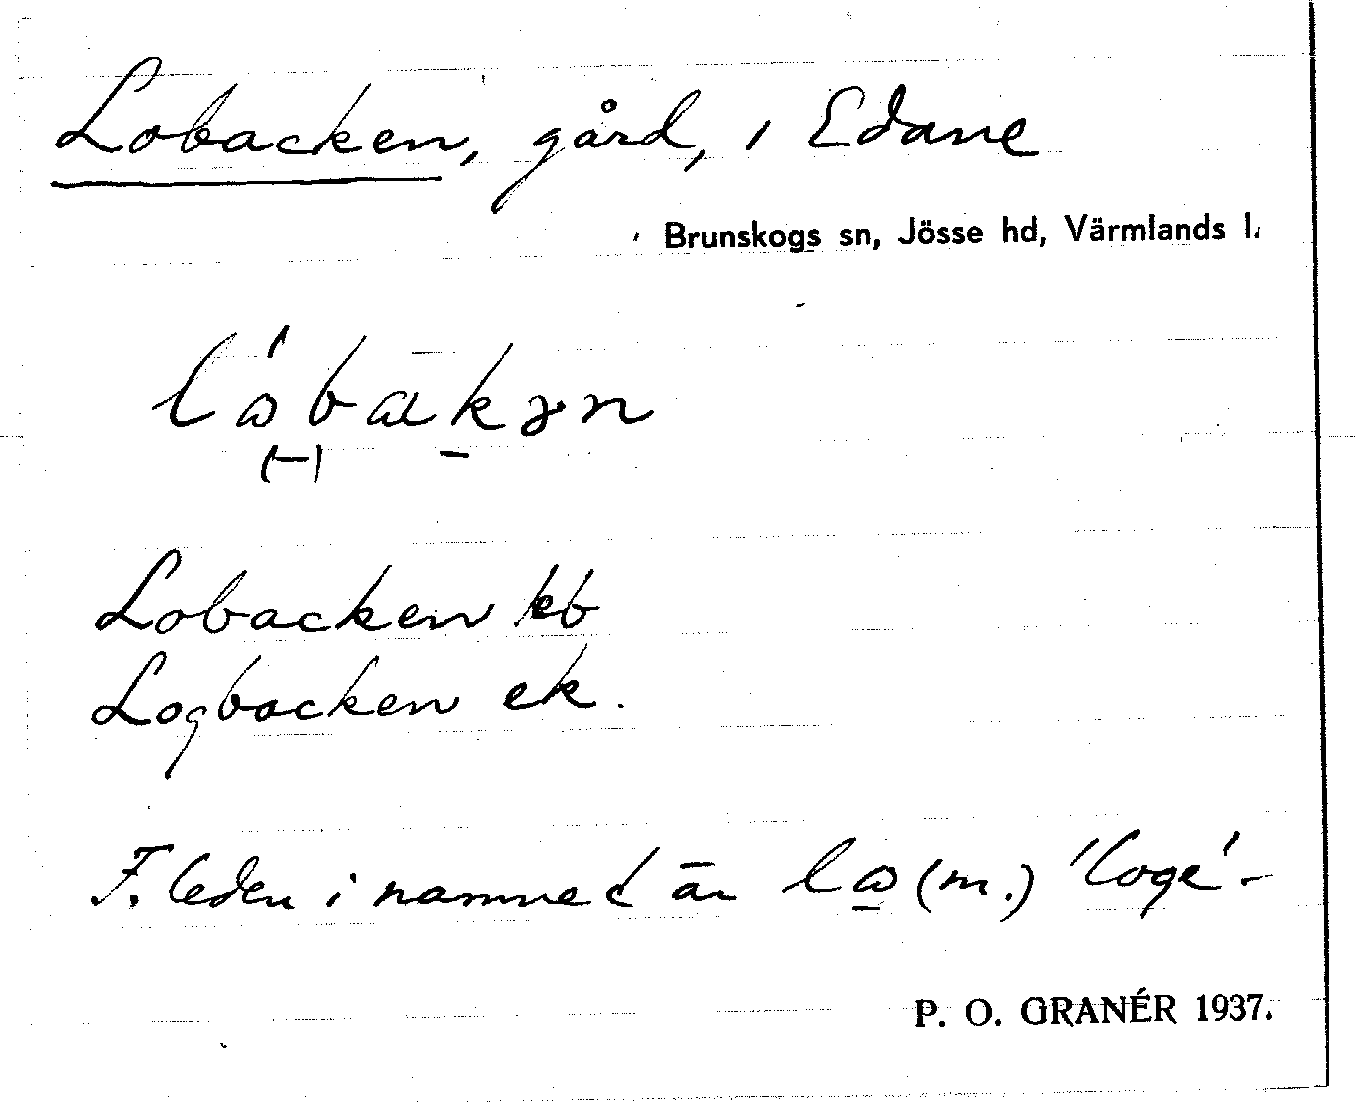 Lobacken, gård, i Edane
Brunskogs sn, Jösse hd, Värmlands l.
lώbak̠ən
(–)
Lobacken kb
Logbacken ek.
F. leden i namnet är lω̠ (m.) 'loge'.
P. O. GRANÉR 1937.